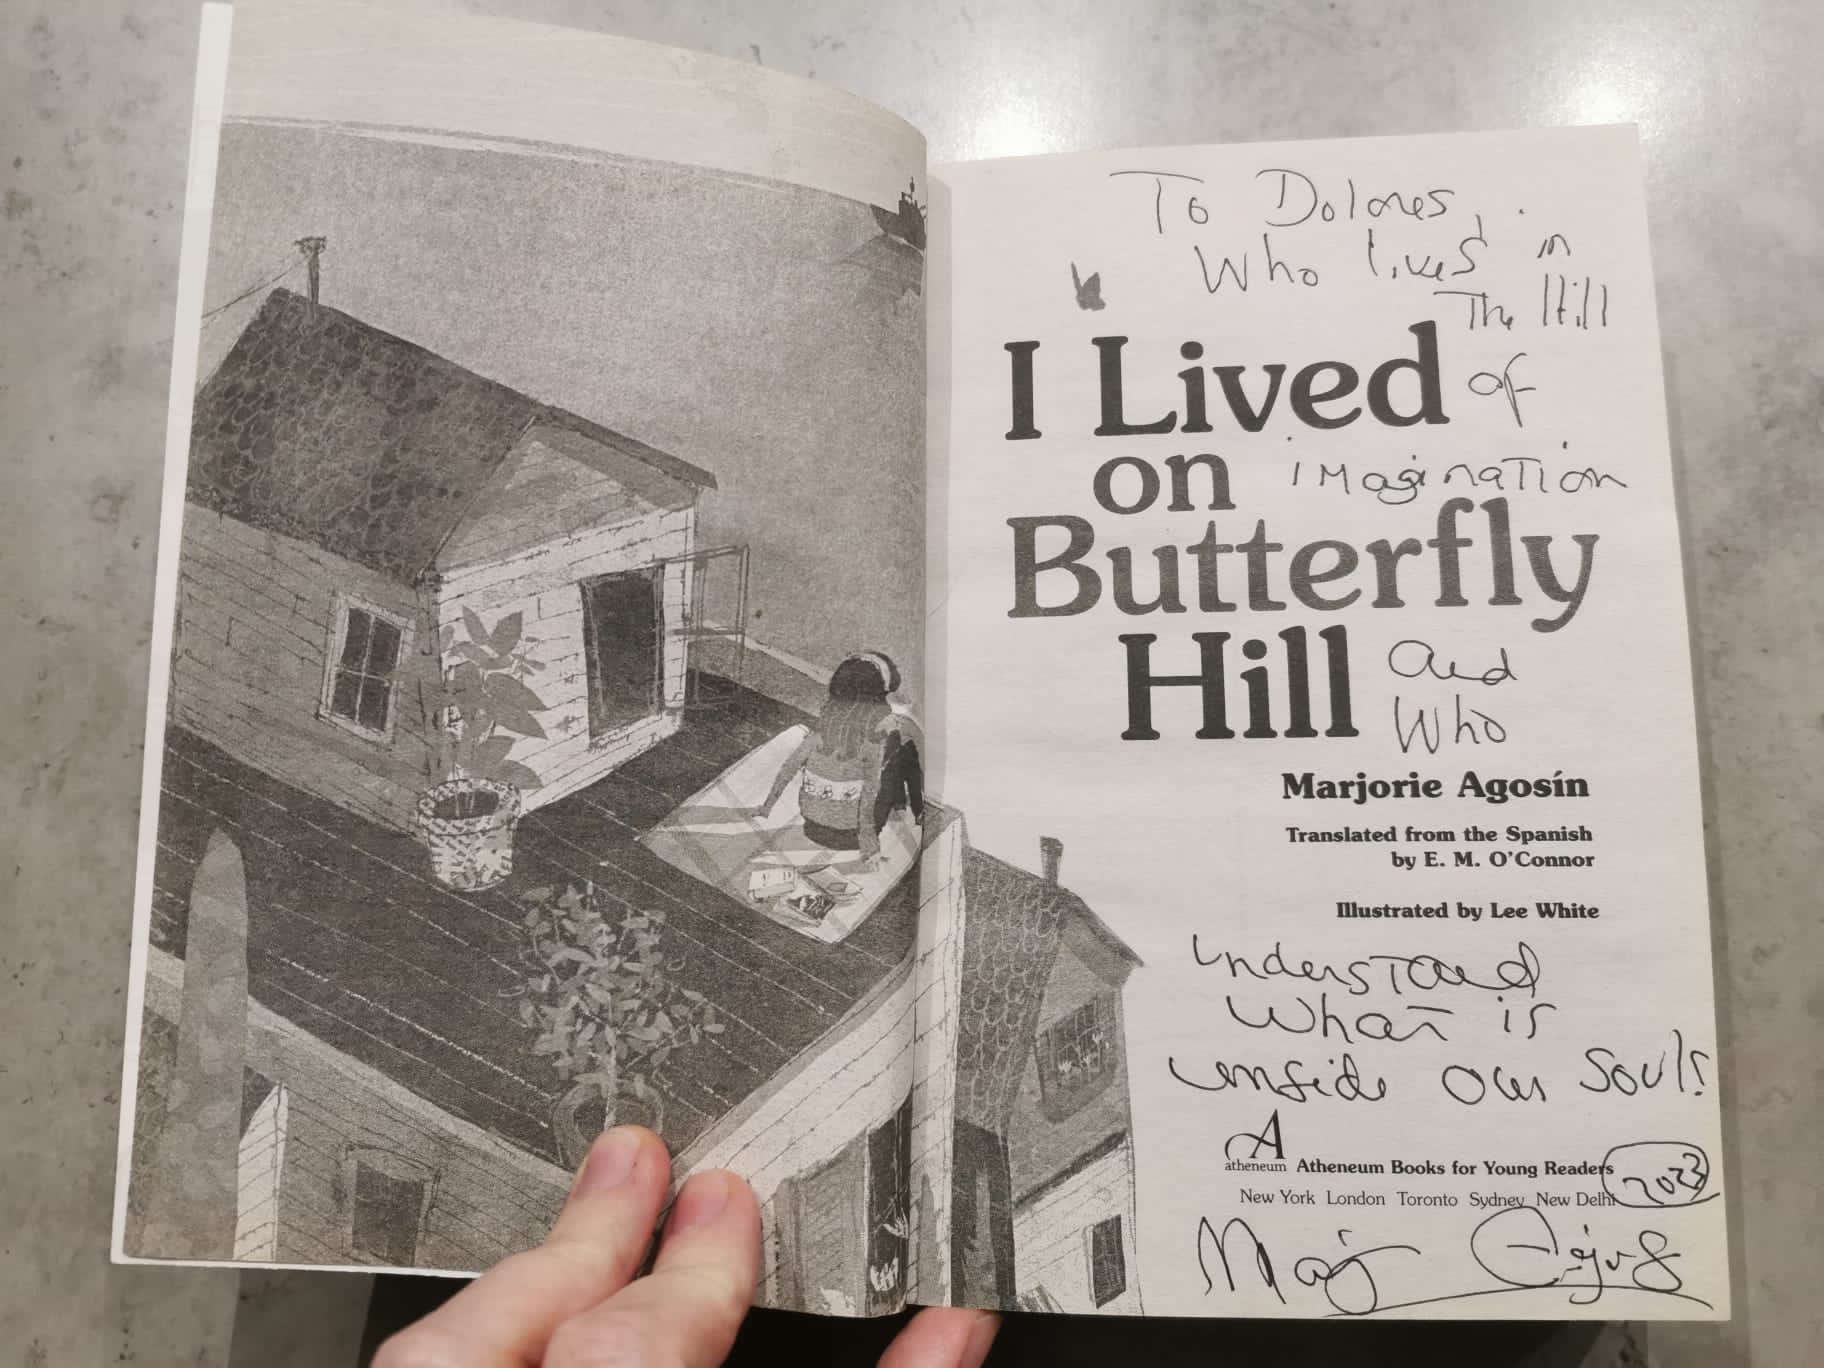 To Dolores,
Who lives in
The Hill
I Lived of
on imagination
Butterfly
Hill and
Who
Marjorie Agosín
Translated from the Spanish
by E. M. O'Connor
Illustrated by Lee White
understand
What is
inside our souls
A
atheneum Atheneum Books for Young Readers
2023
New York London Toronto Sydney New Delhi